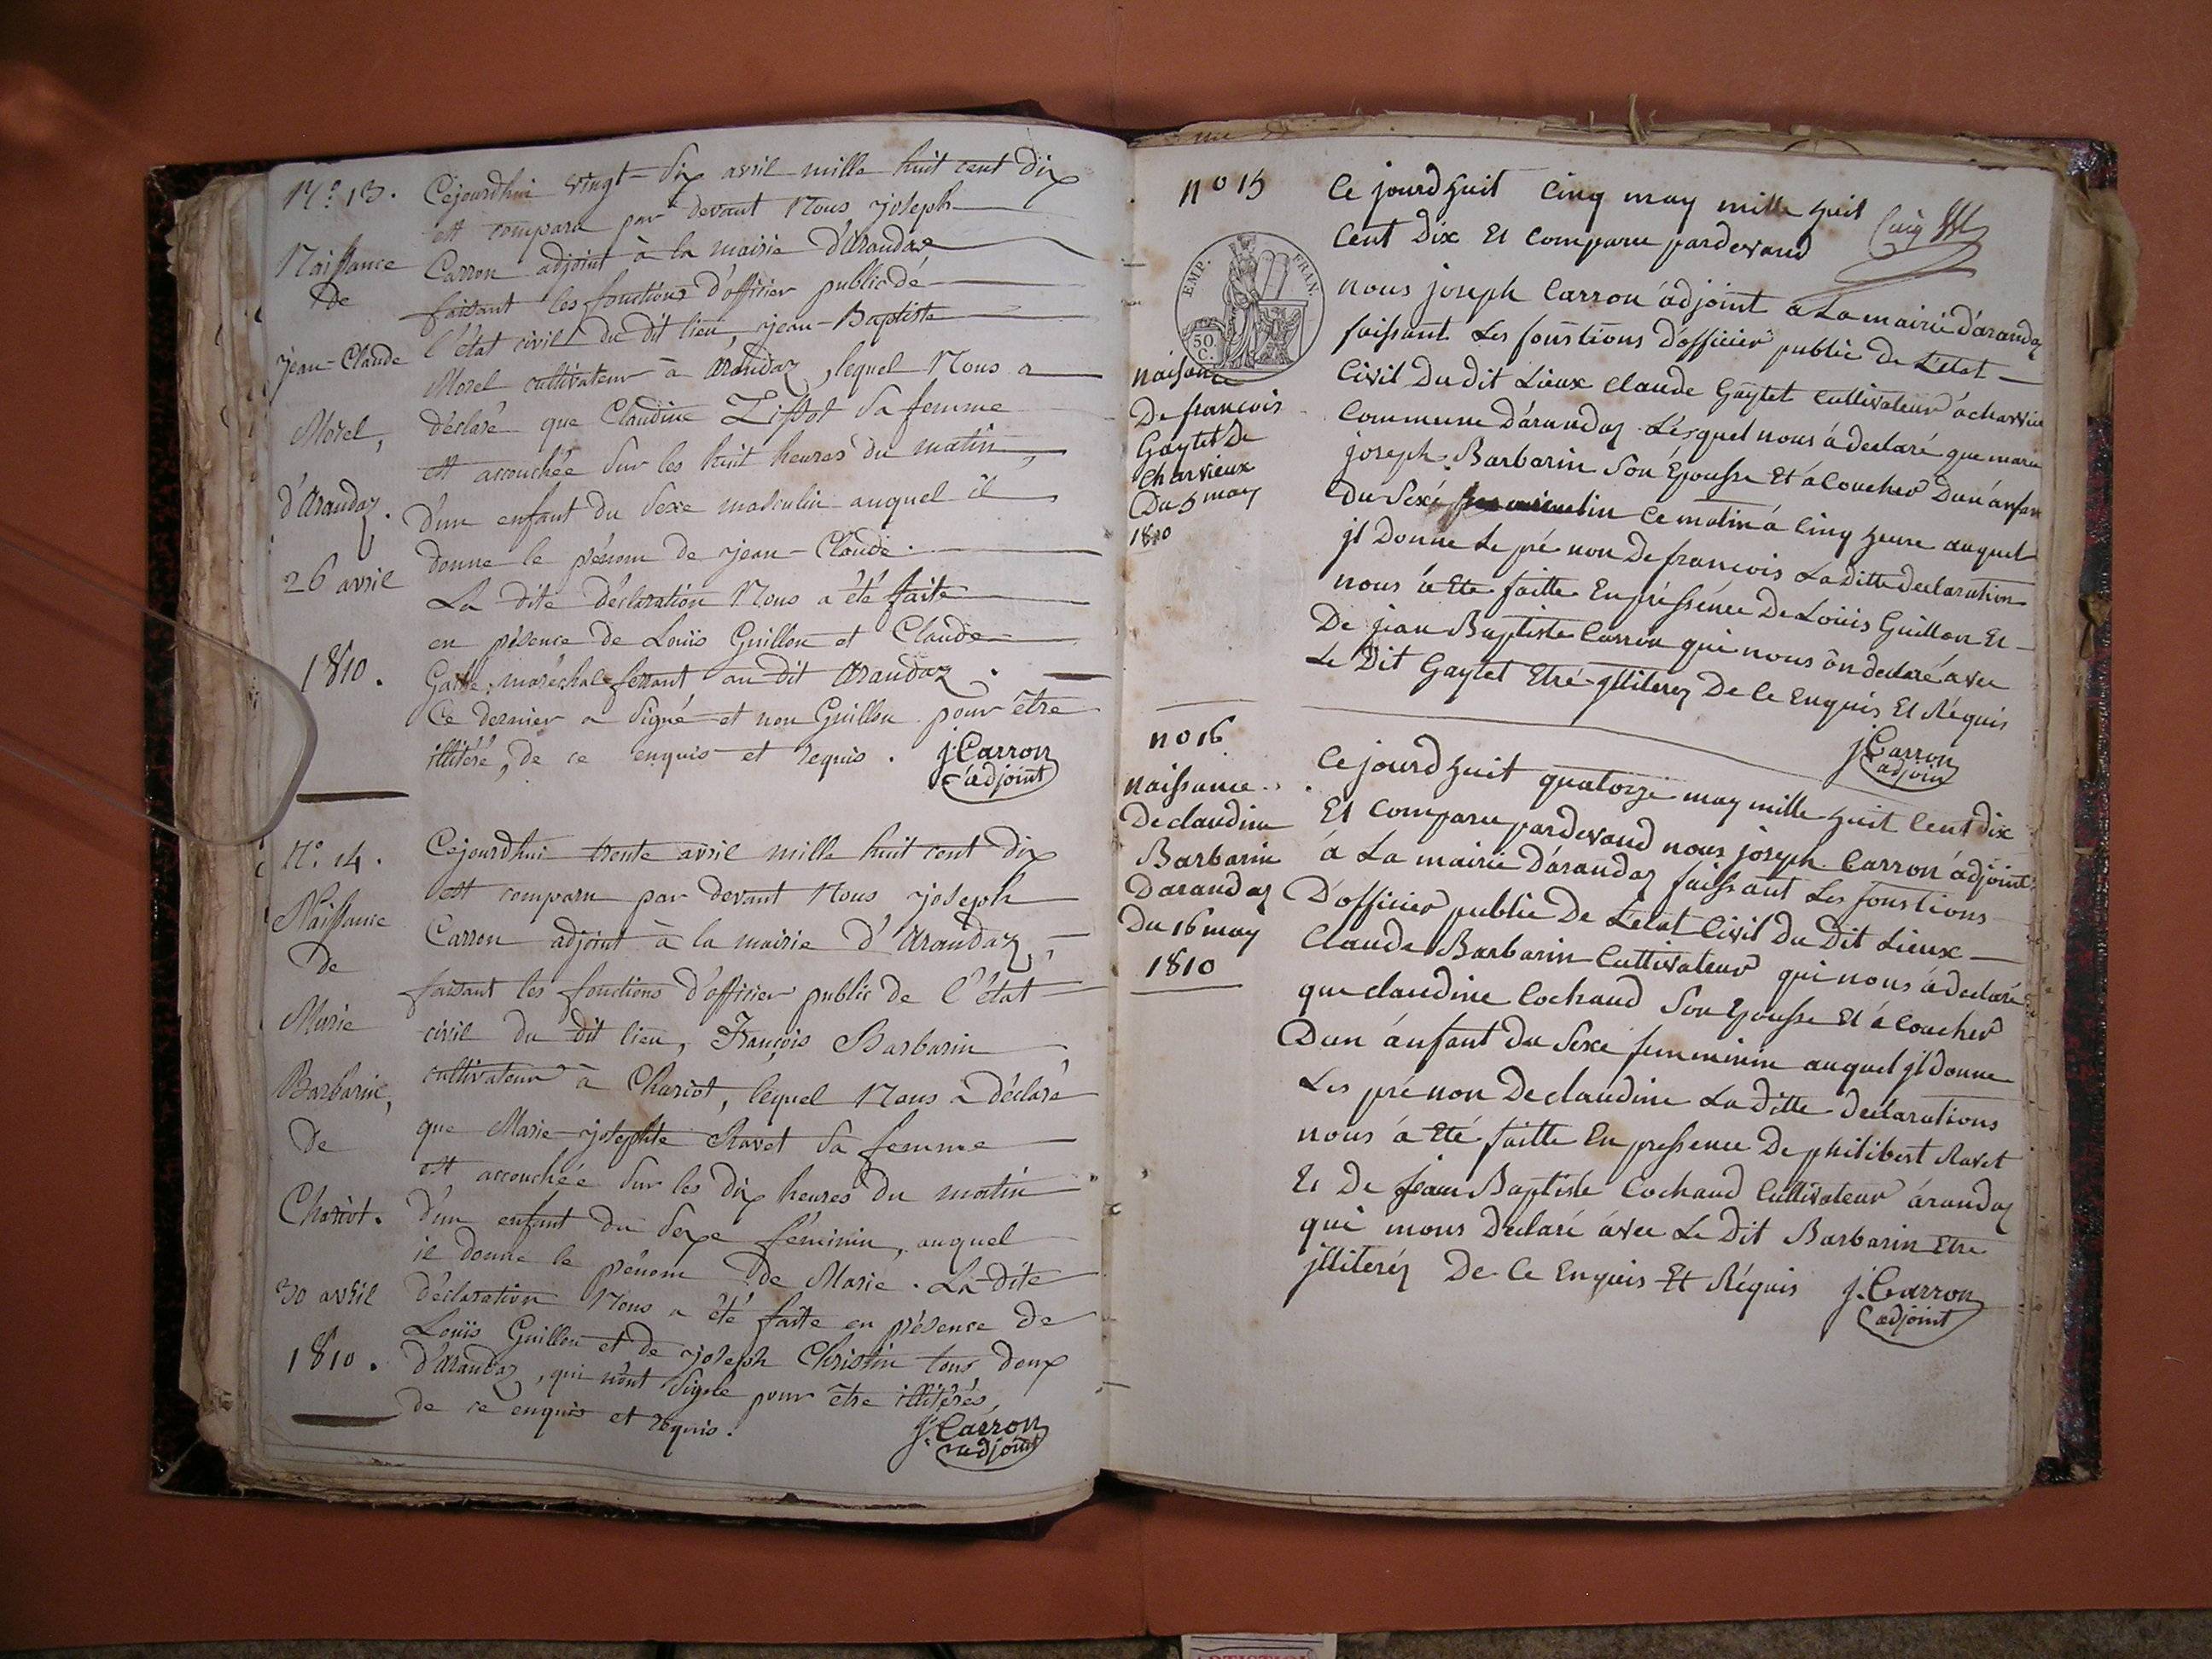 N.º 13.
Naissance
de
jean-Claude
Morel,
d'Arandaz.
26 avril
1810.
Cejourdhui vingt-six avril mille huit cent dix
est comparu par devant Nous joseph
Carron adjoint à la mairie d'Arandaz
faisant les fonctions d'officier public dé
l'état civil du dit lieu, jean-Baptiste
Morel cultivateur à Arandaz, lequel Nous a
déclaré que Claudine Tissot sa femme
est accouchée sur les huit heures du matin,
d'un enfant du sexe masculin auquel il
donne le prénom de jean-Claude.
La dite déclaration Nous a été faite
en présence de Louis Guillon et Claude
maréchal ferrant au dit Arandaz.
Ce dernier a signé et non Guillon pour être
illitéré, de ce enquis et requis.
j. Carron
adjoint
N.º 14.
Naissance
de
Marie
Barbarin,
de
Chariot.
30 avril
1810.
Cejourdhui trente avril mille huit cent dix
est comparu par devant Nous joseph
Carron adjoint à la mairie d'Arandaz,
faisant les fonctions d'officier public de l'état
civil du dit lieu, François Barbarin
cultivateur à Chariot, lequel Nous a déclaré
que Marie-josephte Ravet sa femme
est accouchée sur les dix heures du matin
d'un enfant du sexe féminin, auquel
il donne le prénom de Marie. La dite
déclaration Nous a été faite en présence de
Louis Guillon et de joseph Christin tous deux
d'Arandaz, qui n'ont signé pour être illitérés,
de ce enquis et requis.
j. Carron
adjoint
no 15
EMP. FRAN.
50
C.
naisance
De francois
Gaytet De
Charvieux
Du 5 may
1810
Ce jourd huit Cinq may mille huit
Cent Dix Et Comparu pardevand
nous joseph Carron adjoint a La mairie d'arandaz
faissant Les fonstions d'officier public De L'etat
Civil Du dit Lieux Claude Gaytet Cultivateur
Commune D'arandaz Lesquel nous á declaré que marie
joseph Barbarin Son Epousse Et ácoucher Dun ánfan
Du Sexé Ce matin á Cinq heure auquel
jl Donne Le pré non De francois La ditte declaration
nous á Ete faitte En presséence De Louis Guillon Et
De jean Baptiste Carron qui nous on declaré ávec
Le Dit Gaytet Etré jlliterez De Ce Enquis Et Réquis
j. Carron
adjoint
no 16
naissance
De claudine
Barbarin
Darandaz
Du 16 may
1810
Ce jourd huit quatorze may mille huit Cent dix
Et Comparu pardevand nous joseph Carron adjoint
á La mairie D'arandaz faissant Les fonstions
D'officier public De L'etat Civil Du Dit Lieux
Claude Barbarin Cultivateur qui nous á declaré
que claudine Cochaud Son Epousse Et á Coucher
Dun ánfant Du Sexe femminin auquel jl donne
Les pré non De claudine La ditte declarations
nous á Eté faitte En pressence De philibert Ravet
Et De jean Baptiste Cochaud Cultivateur árandaz
qui mons declaré ávec Le Dit Barbarin Etre
jlliteréz De Ce Enquis Et Réquis
j. Carron
adjoint